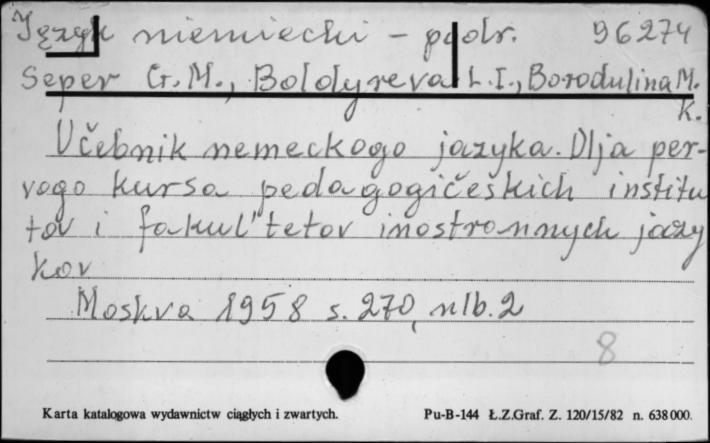 Język niemiecki - podr. 96274
Seper G.M., Boldyreva L.I., Borodulina M.
K.
Učebnik nemeckogo jazyka. Dlja per-
vogo kursa pedagogičeskich institu
tov i fakul'tetov inostrannych jazy
kov
Moskva 1958 s. 270, nlb. 2
8
Karta katalogowa wydawnictw ciągłych i zwartych. Pu-B-144 Ł.Z.Graf. Z. 120/15/82 n. 638000.